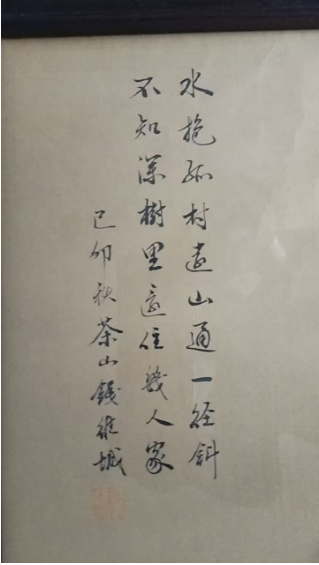 水抱孤村远山通一径斜
不知深樹里還住幾人家
己卯秋茶山錢維城